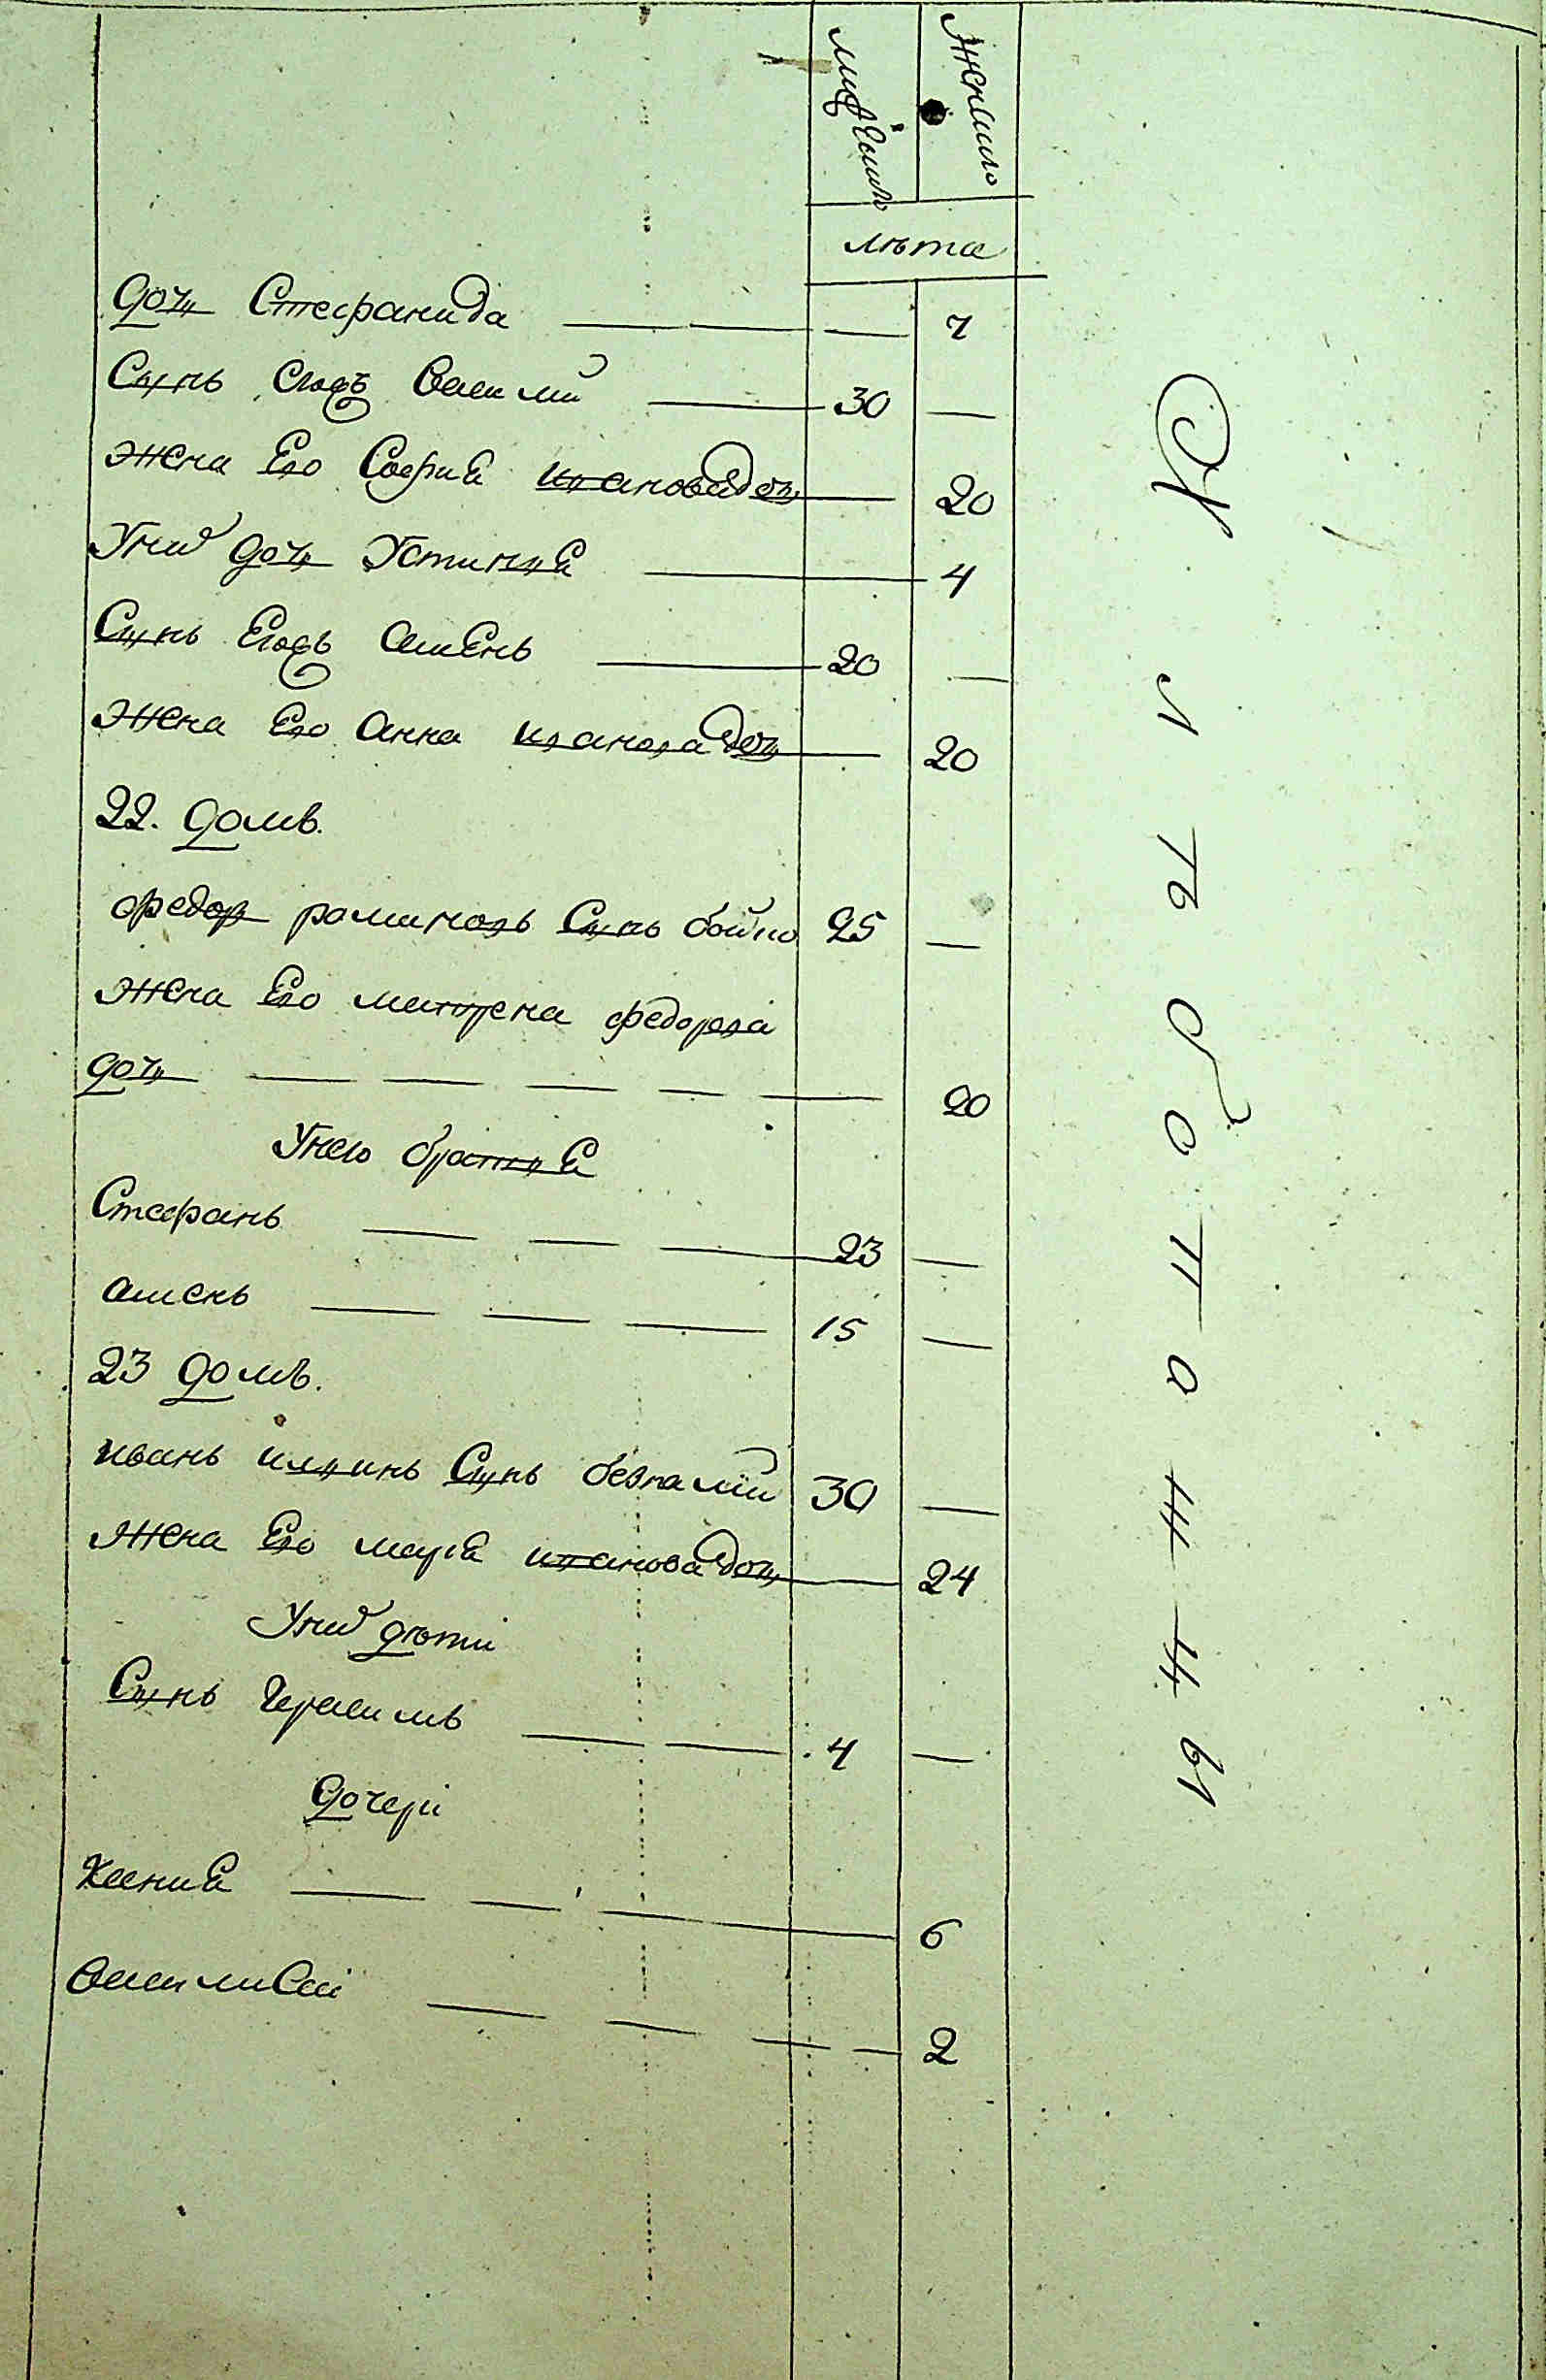 мужеска женска
лѣта
дочь Стефанида — — — 7
Сынъ Егожъ Василий — 30 —
Жена Его София Иванова дочь — 20
У них дочь Устиния — 4
Сынъ Егожъ Семенъ — 20 —
Жена Его Анна Иванова дочь — 20
22. домъ.
Федор романовъ Сынъ бойко 25 —
Жена Его матрена федорова
дочь — — — — — 20
У него братия
Стефанъ — — — 23 —
Семенъ — — — 15 —
23 домъ.
иванъ илиинъ Сынъ 30 —
Жена Его мария иванова дочь — 24
У них дѣти
Сынъ Герасимъ — — 4 —
дочери
Ксения — — — 6
— — — — 2